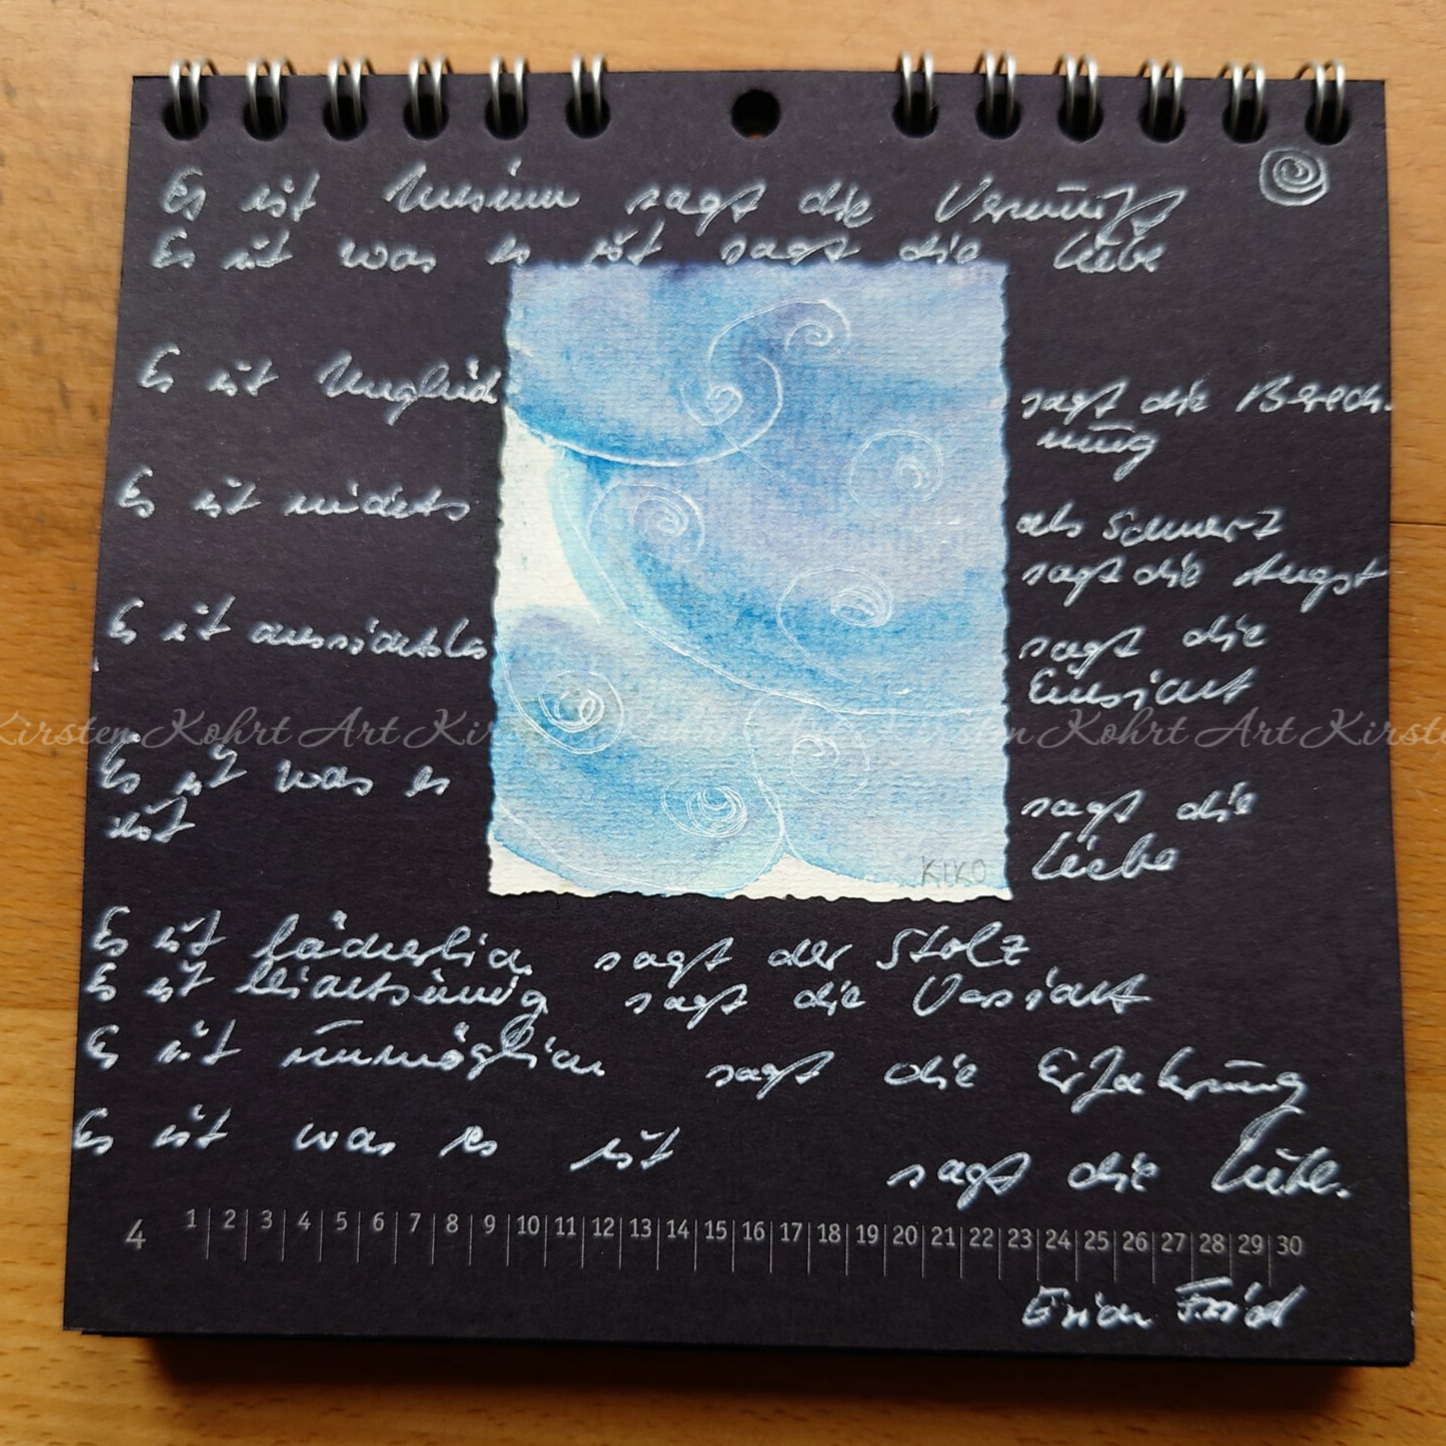 Es ist Unsinn sagt die Vernunft
Es ist was es ist sagt die Liebe
Es ist Unglück sagt die Berech-
nung
Es ist nichts als Schmerz
sagt die Angst
Es ist aussichtslos sagt die
Einsicht
Kirsten Kohrt Art
Es ist was es
ist sagt die
Liebe
KIKO
Es ist lächerlich sagt der Stolz
Es ist leichtsinnig sagt die Vorsicht
Es ist unmöglich sagt die Erfahrung
Es ist was es ist sagt die Liebe.
4 1 2 3 4 5 6 7 8 9 10 11 12 13 14 15 16 17 18 19 20 21 22 23 24 25 26 27 28 29 30
Erich Fried